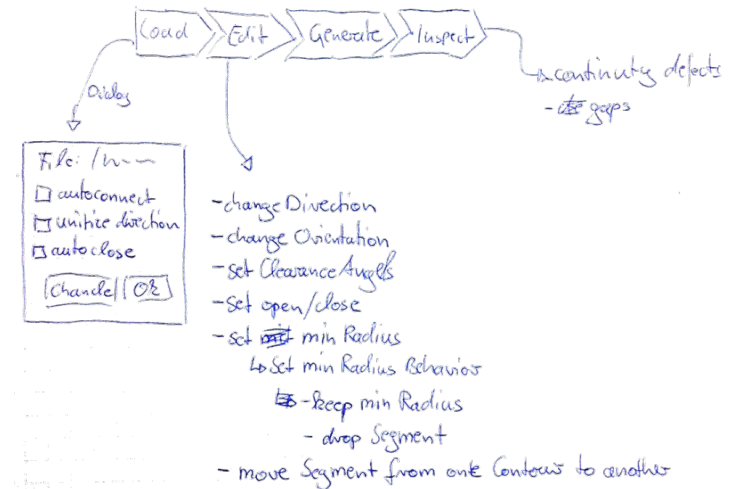 Load Edit Generate Inspect
Dialog
continuity defects
- gaps
File: /
autoconnect
unitize direction
autoclose
Chancle OK
- change Direction
- change Orientation
- set Clearance Angels
- set open/close
- set min Radius
↳ Set min Radius Behavior
- keep min Radius
- drop Segment
- move Segment from one Contour to another